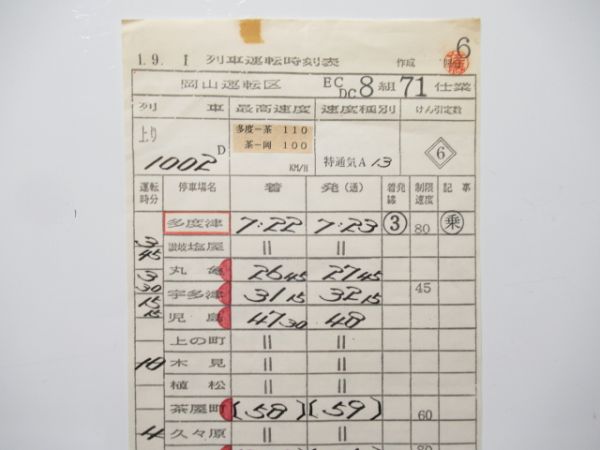 6
1.9. 1 列車運転時刻表 作成
岡山運転区 EC DC 8組 71仕業
列車 最高速度 速度種別 けん引定数
上り 1002D
多度-茶 110
茶-岡 100
KM/H
特通気A13
6
運転時分 停車場名 着 発(通) 着発線 制限速度 記事
多度津 7:22 7:23 ③ 80 乗
3 45 讃岐塩屋 〃 〃
丸亀 26 45 27 45
3 30 宇多津 31 15 32 15 45
15 15 児島 47 30 48
上の町 〃 〃
10 木見 〃 〃
植松 〃 〃
茶屋町 (58) (59) 60
4 久々原 〃 〃
80